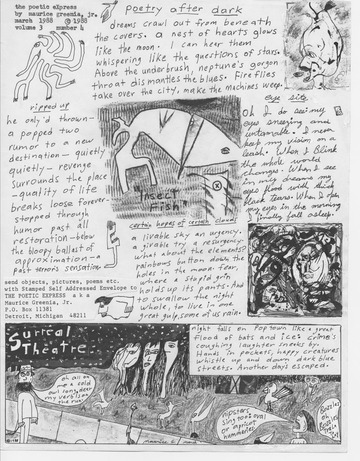 the poetic express
by maurice greenia, jr.
march 1988 @ 1988
volume 3 number 4
poetry after dark
dreams crawl out from beneath
the covers. a nest of hearts glows
like the moon. I can hear them
whispering like the questions of stars.
Above the underbrush, neptune's gorgon
throat dismantles the blues. Fireflies
take over the city, make the machines weep.
ripped up
he only'd thrown—
a popped two
rumor to a new
destination—quietly
quietly—revenge
surrounds the place
—quality of life
breaks loose forever—
stopped through
humor past all
restoration—below
the bloody ballast of
approximation—a
past terror's sensation
insect
fish
X
eye site
Oh I do see my
eyes sneezing and
untamable. I never
keep my vision on a
leash. When I blink
the whole world
changes. When I see
in my dreams my
eyes flood with thick
black tears. When I
in the morning
I finally fall asleep.
certain hopes of certain clouds
a livable sky an urgency.
a girable try a resurgency
what about the elements?
rainbows button down the
holes in the moon: fear,
where a stupid error
holds up its pants. And
to swallow the night
whole, to live in one
great gulp, some of us rain.
send objects, pictures, poems etc.
or a Stamped Self Addressed Envelope to
THE POETIC EXPRESS a k a
Maurice Greenia, Jr.
P.O. Box 11381
Detroit, Michigan 48211
Surreal
Theatre
night falls on Poptown like a great
flood of bats and ice. crime's
coughing laughter sneaks by.
Hands in pockets, happy creatures
whistle up and down dark blue
streets. Another day's escaped.
oh all of
me a cold
owl song, dear
my verb is on
the run
hipsters
sing to an oval
or apricot
hammerhead
puzzles
on
train